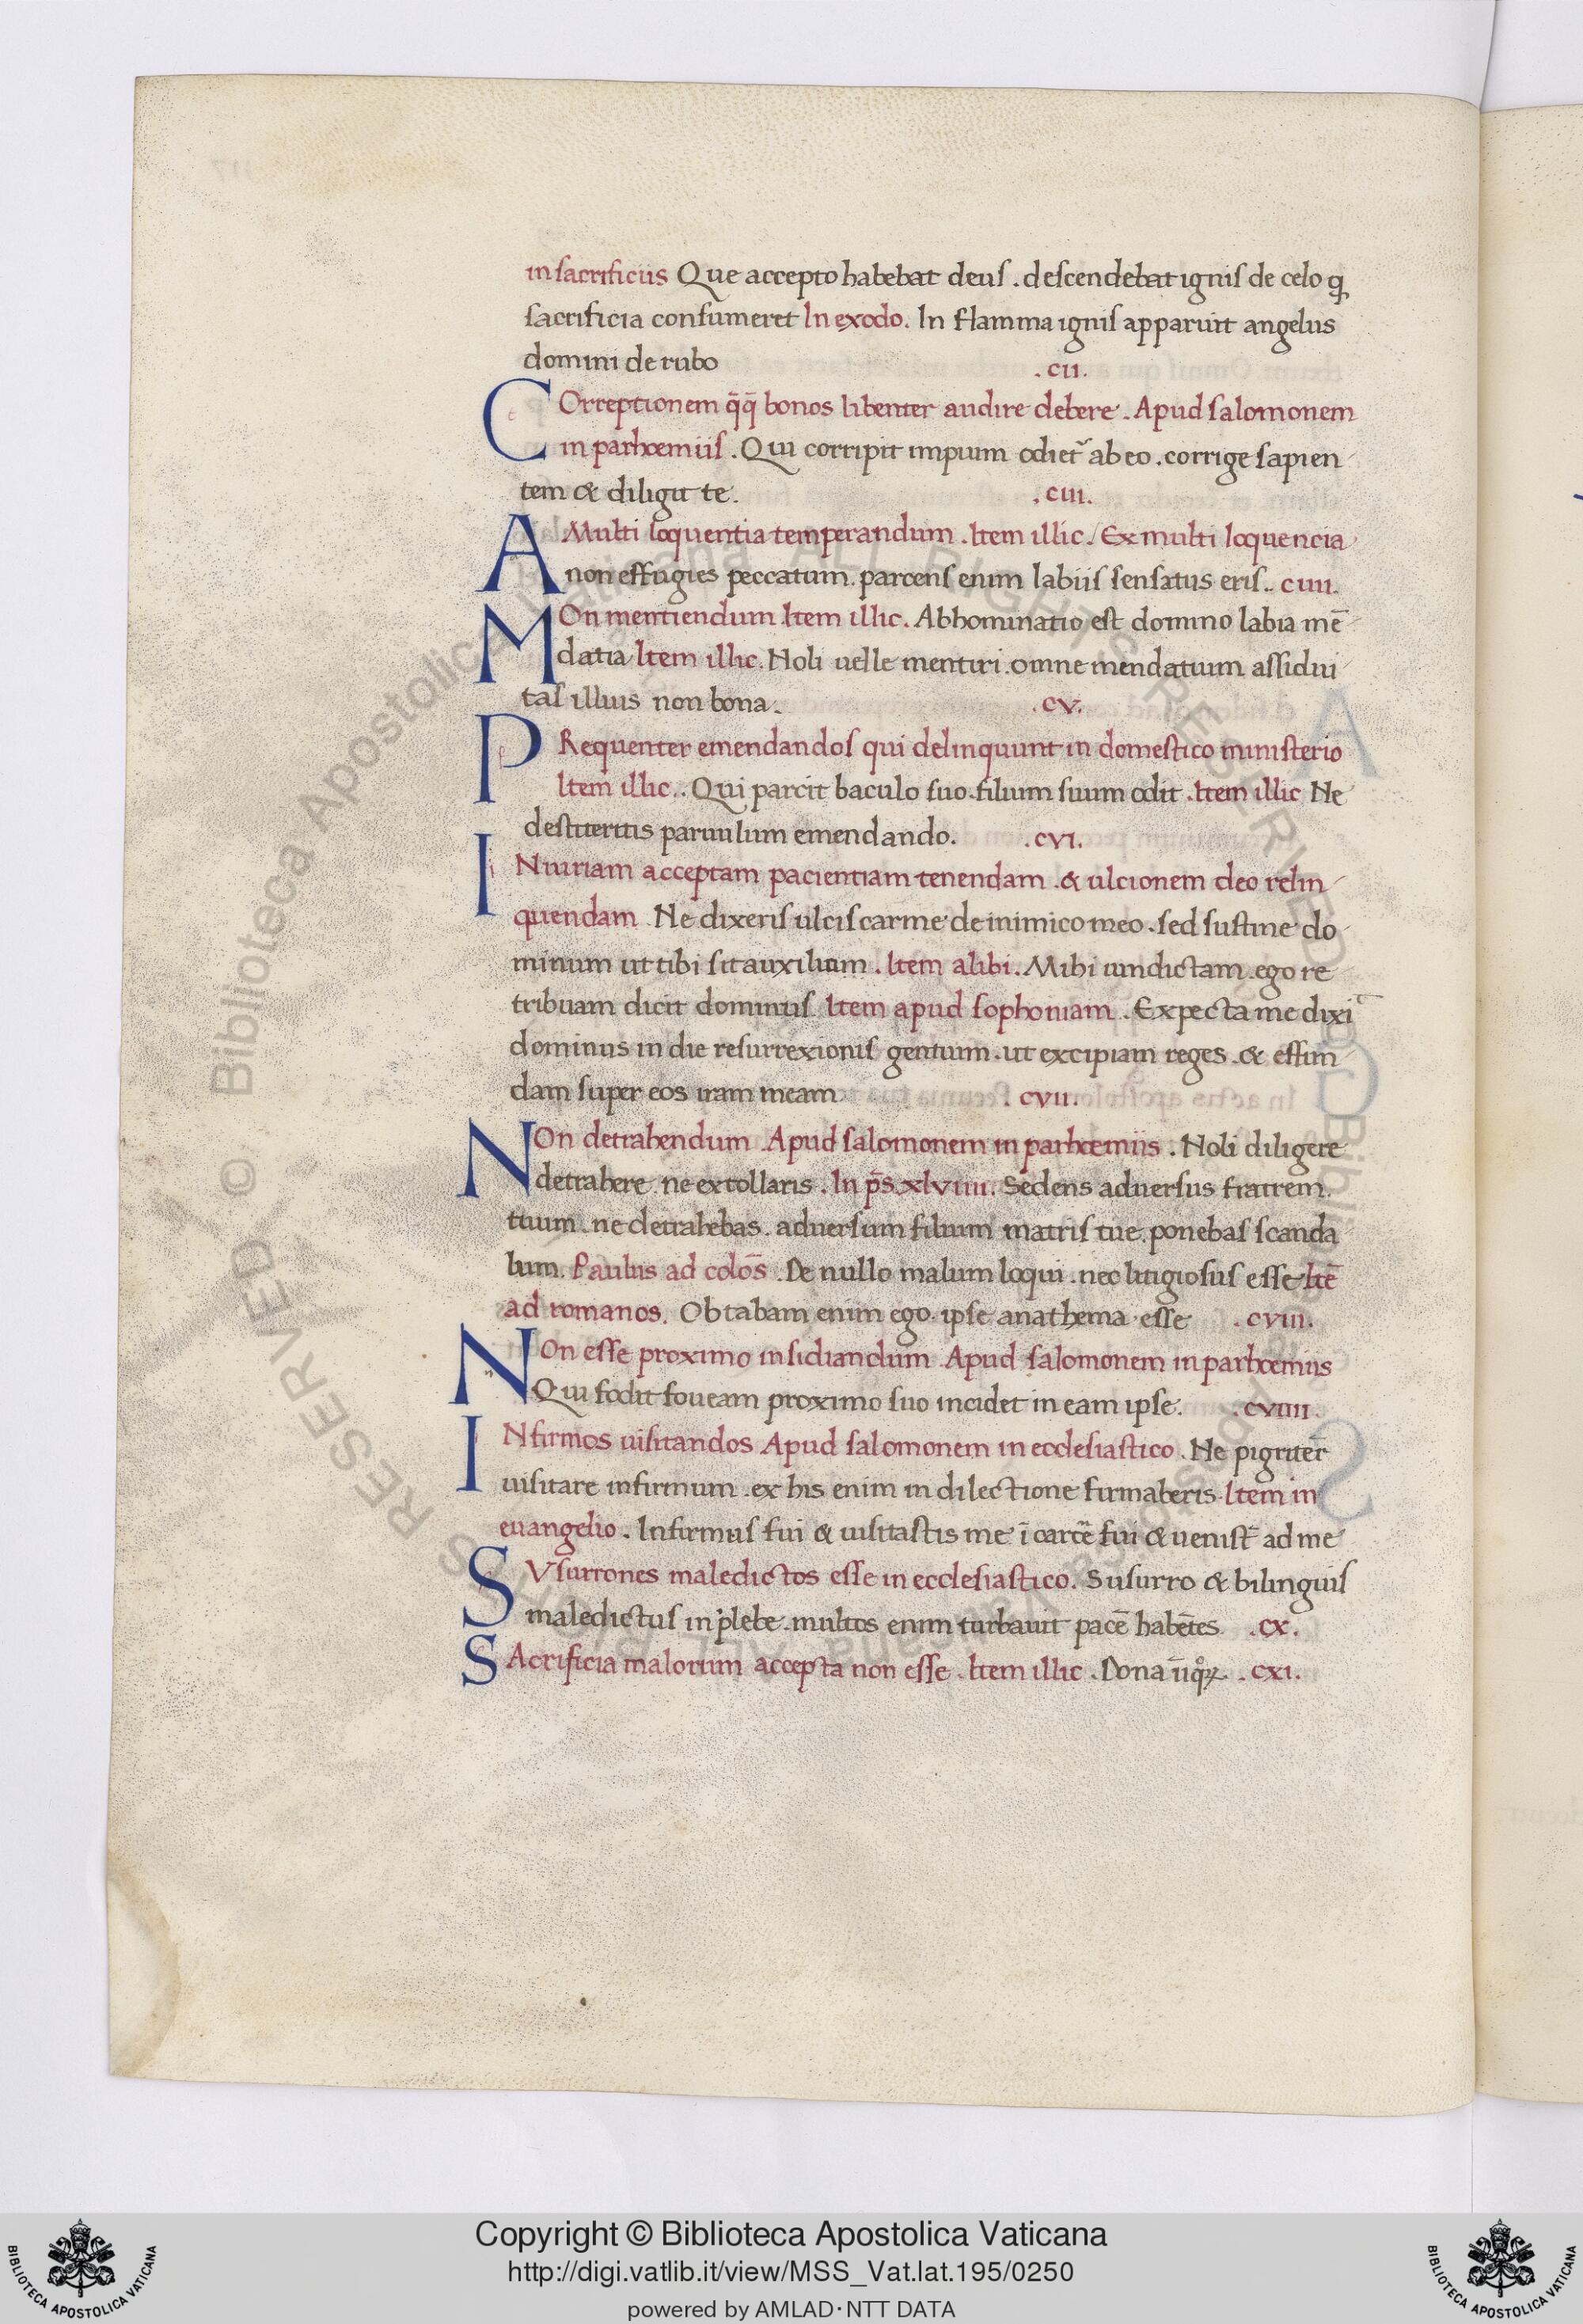 in sacrificiis Que accepto habebat deus . descendebat ignis de celo q
sacrificia consumeret In exodo. In flamma ignis apparuit angelus
domini de rubo .CII.
COrreptionem q̄q̄ bonos libenter audire debere . Apud salomonem
in parhœmiis . Qui corripit impium odiet᷑ ab eo . corrige sapien
tem & diligit te. .CIII.
A Multi loquentia temperandum . Item illic. Ex multi loquencia
non effugies peccatum . parcens enim labiis sensatus eris . . CIIII.
MOn mentiendum Item illic. Abhominatio est domino labia mē
datia Item illic. Noli uelle mentiri . omne mendatium assidui
tas illius non bona . . CV.
PRequenter emendandos qui delinquunt in domestico ministerio
Item illic. . Qui parcit baculo suo . filium suum odit . Item illic Ne
destiteritis paruulum emendando . . CVI.
INiuriam acceptam pacientiam tenendam . & ulcionem deo relin
quendam . Ne dixeris ulciscar me de inimico meo . sed sustine do
minum ut tibi sit auxilium . Item alibi . Mihi uindictam . ego re
tribuam dicit dominus. Item apud sophoniam . Expecta me dixi
dominus in die resurrexionis gentium . ut excipiam reges . & effun
dam super eos iram meam . CVII.
NOn detrahendum . Apud salomonem in parhœmiis . Noli diligere
detrahere . ne extollaris . In p̄s. xlviiii. Sedens aduersus fratrem
tuum . ne detrahebas . aduersum filium matris tue . ponebas scanda
lum. Paulus ad colos̄ . De nullo malum loqui . nec litigiosus esse Itē
ad romanos. Obtabam enim ego ipse anathema esse . CVIII.
NOn esse proximo insidiandum . Apud salomonem in parhœmiis
Qui fodit foueam proximo suo incidet in eam ipse . . CVIIII.
INfirmos uisitandos Apud salomonem in ecclesiastico . Ne pigriter̄
uisitare infirmum . ex his enim in dilectione firmaberis . Item in
euangelio . Infirmus fui & uisitastis me ī carcē fui & uenist̄ ad me
SVsurrones maledictos esse in ecclesiastico. Susurro & bilinguis
maledictus in plebe . multos enim turbauit pacē habētes . CX.
SAcrificia malorum accepta non esse . Item illic . Dona . CXI.
Biblioteca Apostolica Vaticana ALL RIGHTS RESERVED ©
Copyright © Biblioteca Apostolica Vaticana
http://digi.vatlib.it/view/MSS_Vat.lat.195/0250
powered by AMLAD·NTT DATA
BIBLIOTECA APOSTOLICA VATICANA
BIBLIOTECA APOSTOLICA VATICANA